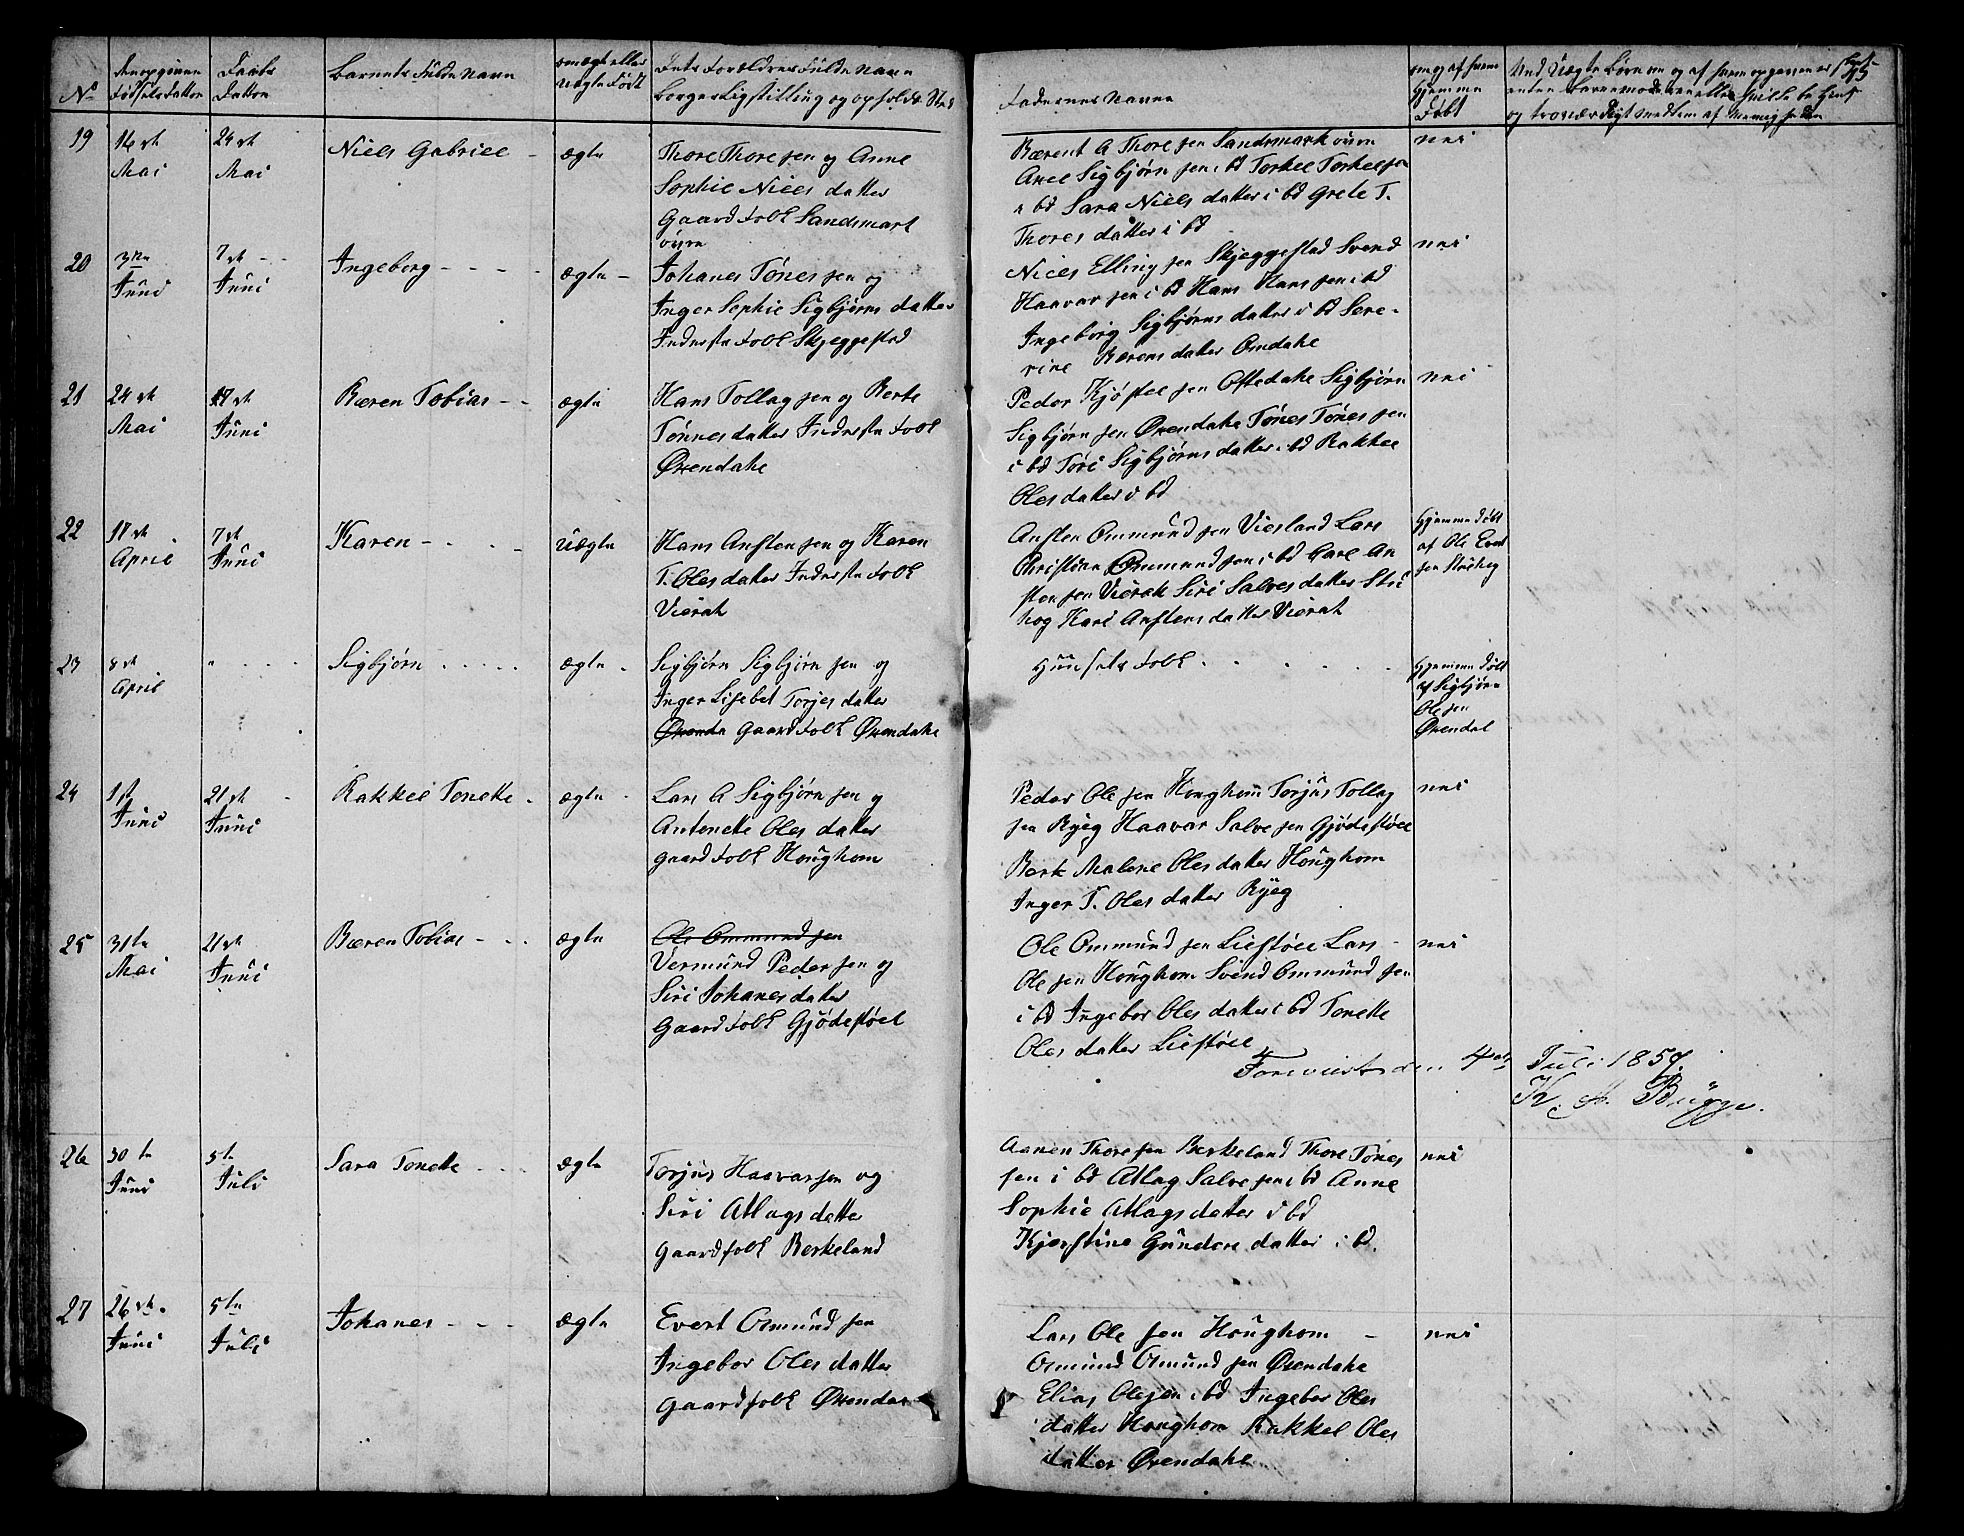 No
den opgivne
Fødsels datton
Daabs
datton
barnets fulde navn
om ægte eller
uægte Født
dets Forældres Fulde Navn
borgerligstilling og opholds Sted
Fadernes Navne
om og af hvem
hjemme
Døbt
ved uægte børn om og af hvem opgaven er skeet
enten barnemoderen eller
45
19
16de
Mai
24de
Mai
Niels Gabriel -
ægte
Thore Thoresen og Anne
Sophie Niels datter
Gaardfolk Sandsmark
øvre
Bærent A Thoresen Sandsmark øvre
Axel Sigbjørnsen i bd Torkel Torkelsen
i bd Sara Niels datter i bd Grete T.
Thores datter i bd
nei
20
3die
Juni
7de
Juni
Ingeborg - - - -
ægte -
Johanes Tønesen og
Inger Sophie Sigbjørns datter
Inderste Folk Skjeggestad
Niels Ellingsen Skjeggestad Svend
Haavorsen i bd Hans Hansen i bd
Ingeborg Sigbjørns datter i bd Sere-
rine Bærens datter Omdahl
nei
21
24de
Mai
17de
Juni
Bæren Tobias - -
ægte
Hans Tollagsen og Berte
Tønnes datter Inderste Folk
Øxendahl
Peder Kjøstelsen Oftedahl Sigbjørn
Sigbjørnsen Øxendahl Tønes Tønesen
i bd Tøri Sigbjørns datter i bd Rakkel
Oles datter i bd
nei
22
17de
April
7de
Juni
Karen - - - -
uægte
Hans Anstensen og Karen
T. Oles datter Inderste Folk
Vierak
Ansten Ommundsen Viesland Lars
Christian Ommundsen i bd Carl An
stensen Vierak Siri Salves datter
hog Kari Anstens datter Vierak
hjemme Døbt
af Ole
23
8de
April
Sigbjørn . . . . .
ægte .
Sigbjørn Sigbjørnsen og
Inger Lisebet Torjes datter
Øxenda Gaardfolk Øxendahl
Huusets Folk
hjemme Døbt
af Sigbjørn
Olesen
Øxendal
24
1ste
Juni
21de
Juni
Rakkel Tonette .
ægte -
Lars A Sigbjørnsen og
Antonette Oles datter
Gaardfolk Houghom
Peder Olesen Houghom Torjus Tollag
sen Ryeg Haavar Salvesen Gjødestøel
Berte Malene Oles datter Houghom
Inger T. Oles datter Ryeg
nei
25
31te
Mai
21de
Juni
Bæren Tobias - - .
ægte
Ole Ommundsen
Vermund Pedersen og
Siri Johanes datter
Gaardfolk Gjødestøel
Ole Ommundsen Liestøel Lars -
Olesen Houghom Svend Ommundsen
i bd Ingebor Oles datter i bd Tonette
Oles datter Liestøel
nei
Foreviist den 4de Juli 1857.
K. A. Bugge.
26
30te
Juni
5te
Juli
Sara Tonette - - -
ægte
Torjus Haavarsen og
Siri Atlags datter
Gaardfolk Berkeland
Aanen Thoresen Berkeland Thore Tønes
sen i bd Atlag Salvesen i bd Anne
Sophie Atlags datter i bd
Kjerstine Gunders datter i bd.
nei
27
26de
Juni
5te
Juli
Johanes - - -
ægte
Evert Omundsen
Ingebor Oles datter
Gaardfolk Øxendal
Lars Olesen Houghom -
Omund Omundsen Øxendahl
Elias Olesen i bd Ingebor Oles
datter Houghom Rakkel Oles
datter Øxendahl
nei